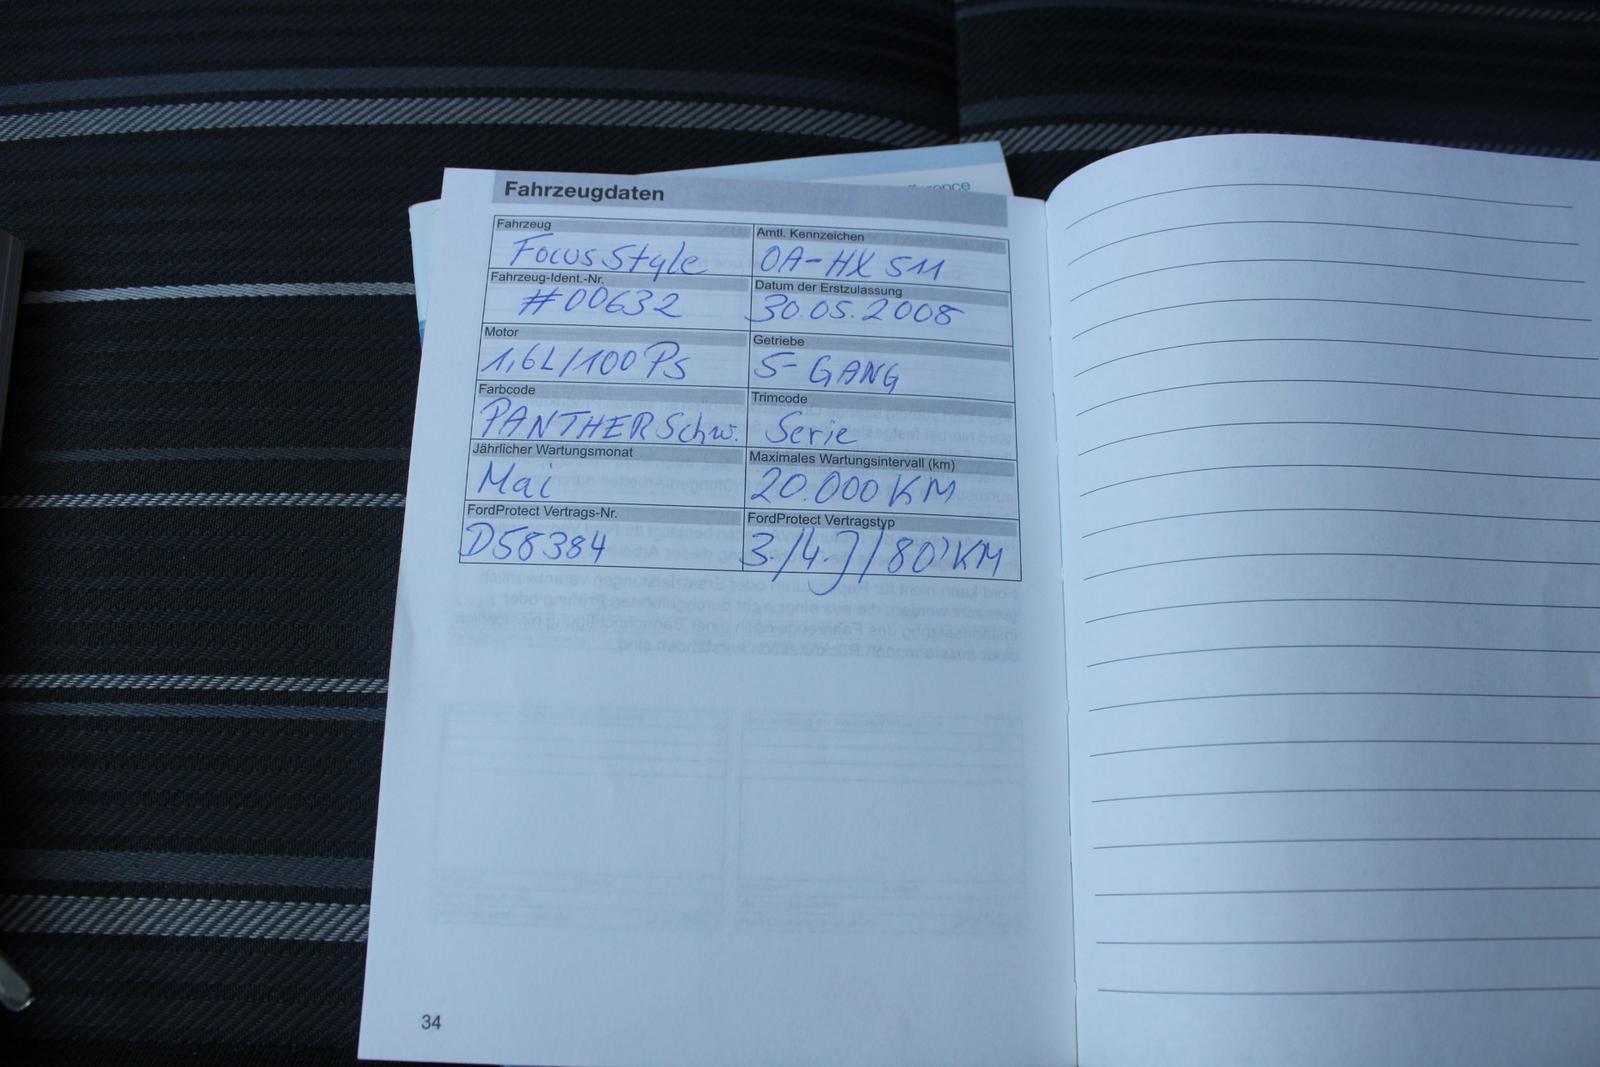 Fahrzeugdaten
Fahrzeug
Focus Style
Amtl. Kennzeichen
OA-HX 511
Fahrzeug-Ident.-Nr.
#00632
Datum der Erstzulassung
30.05.2008
Motor
1,6L/100 PS
Getriebe
5-GANG
Farbcode
PANTHER Schw.
Trimcode
Serie
Jährlicher Wartungsmonat
Mai
Maximales Wartungsintervall (km)
20.000 KM
FordProtect Vertrags-Nr.
D58384
FordProtect Vertragstyp
3./4.J/80'KM
34